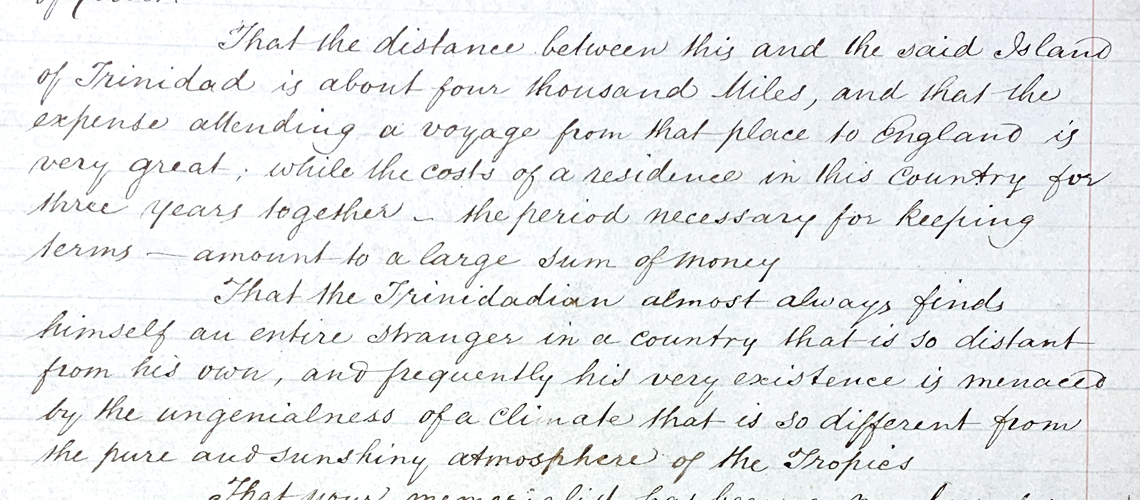 That the distance between this and the said Island
of Trinidad is about four thousand Miles, and that the
expense attending a voyage from that place to England is
very great; while the costs of a residence in this Country for
three years together – the period necessary for keeping
terms – amount to a large sum of Money
That the Trinidadian almost always finds
himself an entire stranger in a country that is so distant
from his own, and frequently his very existence is menaced
by the ungenialness of a Climate that is so different from
the pure and sunshiny atmosphere of the Tropics
That your memorialist has been